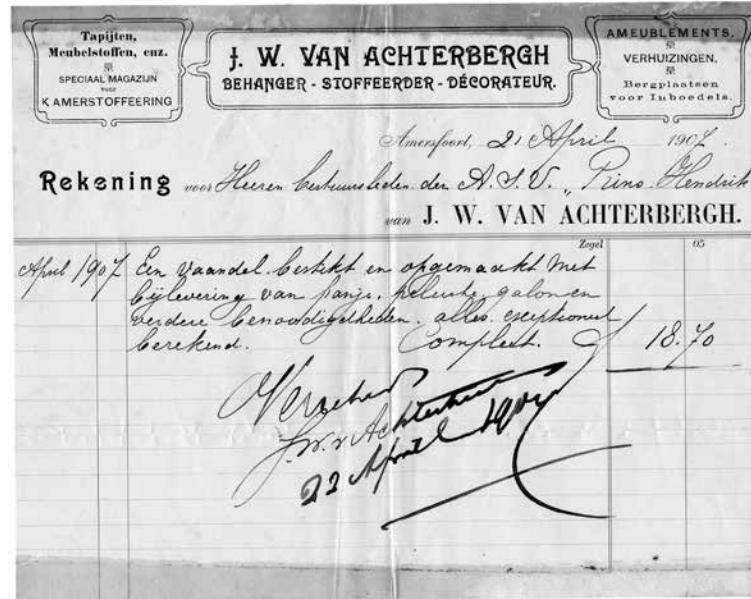 Tapijten,
Meubelstoffen, enz.
SPECIAAL MAGAZIJN
VOOR
KAMERSTOFFEERING
J. W. VAN ACHTERBERGH
BEHANGER - STOFFEERDER - DÉCORATEUR.
AMEUBLEMENTS,
VERHUIZINGEN,
Bergplaatsen
voor Inboedels.
Amersfoort, 21 April 1907.
Rekening voor Heeren bestuursleden der A.S.V. „Prins Hendrik
van J. W. VAN ACHTERBERGH.
Zegel 05
April 1907 Een Vaandel bestikt en opgemaakt met
bijlevering van franje, peluche, galon en
verdere benoodigdheden. alles exceptioneel
berekend. Compleet. 18.70
J.W. v Achterbergh
22 April 1907